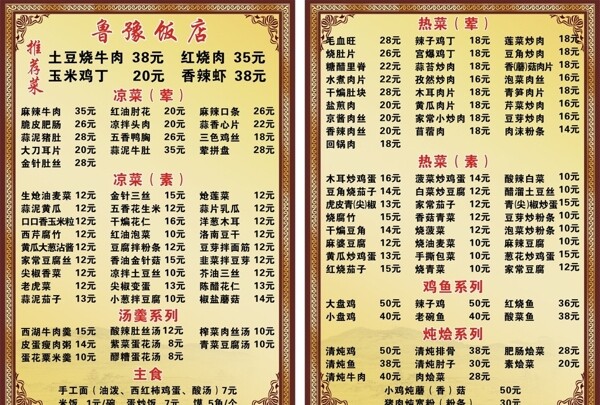 鲁豫饭店
推荐菜
土豆烧牛肉 38元 红烧肉 35元
玉米鸡丁 20元 香辣虾 38元
凉菜（荤）
麻辣牛肉 35元 红油肘花 20元 麻辣口条 26元
脆皮肥肠 26元 凉拌头肉 20元 蒜香心片 22元
蒜泥猪肚 28元 五香鸭胸 26元 三色鸡丝 18元
大刀耳片 20元 蒜泥牛肚 35元 荤拼盘 28元
金针肚丝 28元
凉菜（素）
生炝油麦菜 12元 金针三丝 15元 炝莲菜 12元
蒜泥黄瓜 12元 五香花生米 12元 蒜片乳瓜 12元
口口香玉米粒 12元 干煸花仁 16元 洋葱木耳 12元
西芹腐竹 12元 红油泡菜 10元 洛南豆干 12元
黄瓜大葱沾酱 12元 豆腐拌粉条 12元 豆芽拌面筋 12元
家常豆腐丝 12元 香油金针菇 15元 韭菜拌豆芽 12元
尖椒香菜 12元 凉拌土豆丝 10元 芥油三丝 12元
老虎菜 12元 尖椒变蛋 13元 陈醋花仁 13元
蒜泥茄子 13元 小葱拌豆腐 10元 椒盐蘑菇 14元
汤羹系列
西湖牛肉羹 15元 酸辣肚丝汤 12元 榨菜肉丝汤 10元
皮蛋瘦肉粥 14元 紫菜蛋花汤 8元 青菜豆腐汤 10元
蛋花粟米羹 10元 醪糟蛋花汤 8元
主食
手工面（油泼、西红柿鸡蛋、酸汤）7元
米饭 1元/碗 蛋炒饭 7元 馍 5角/个
热菜（荤）
毛血旺 28元 辣子鸡丁 18元 莲菜炒肉 18元
烧肚片 28元 宫爆鸡丁 18元 豆角炒肉 18元
糖醋里脊 22元 蒜苔炒肉 18元 香(蘑)菇炒肉 18元
水煮肉片 22元 孜然炒肉 16元 泡菜肉丝 16元
干煸肚块 28元 木耳肉片 18元 青笋肉片 18元
盐煎肉 20元 黄瓜肉片 18元 芹菜炒肉 16元
京酱肉丝 20元 家常小炒肉 18元 豆芽炒肉 16元
香辣肉丝 20元 苜蓿肉 18元 肉沫粉条 14元
回锅肉 18元
热菜（素）
木耳炒鸡蛋 16元 菠菜炒鸡蛋 14元 酸辣白菜 10元
豆角烧茄子 14元 白菜炒豆腐 12元 醋溜土豆丝 10元
虎皮青(尖)椒 13元 家常茄子 12元 青(尖)椒炒蛋 15元
烧腐竹 15元 香菇青菜 12元 豆芽炒粉条 10元
干煸豆角 14元 烧菠菜 12元 泡菜炒粉条 10元
麻婆豆腐 12元 烧油麦菜 10元 麻辣豆腐 10元
黄瓜炒鸡蛋 13元 手撕包菜 10元 葱花炒鸡蛋 15元
红烧茄子 13元 烧青菜 10元 家常豆腐 12元
鸡鱼系列
大盘鸡 50元 辣子鸡 50元 红烧鱼 36元
小盘鸡 40元 老碗鱼 40元 酸菜鱼 38元
炖烩系列
清炖鸡 50元 清炖排骨 38元 肥肠烩菜 28元
清炖鱼 35元 清炖肘子 30元 素烩菜 20元
清炖牛肉 40元 肉烩菜 28元
小鸡炖蘑（香）菇 50元
猪肉炖宽粉（粉条） 30元